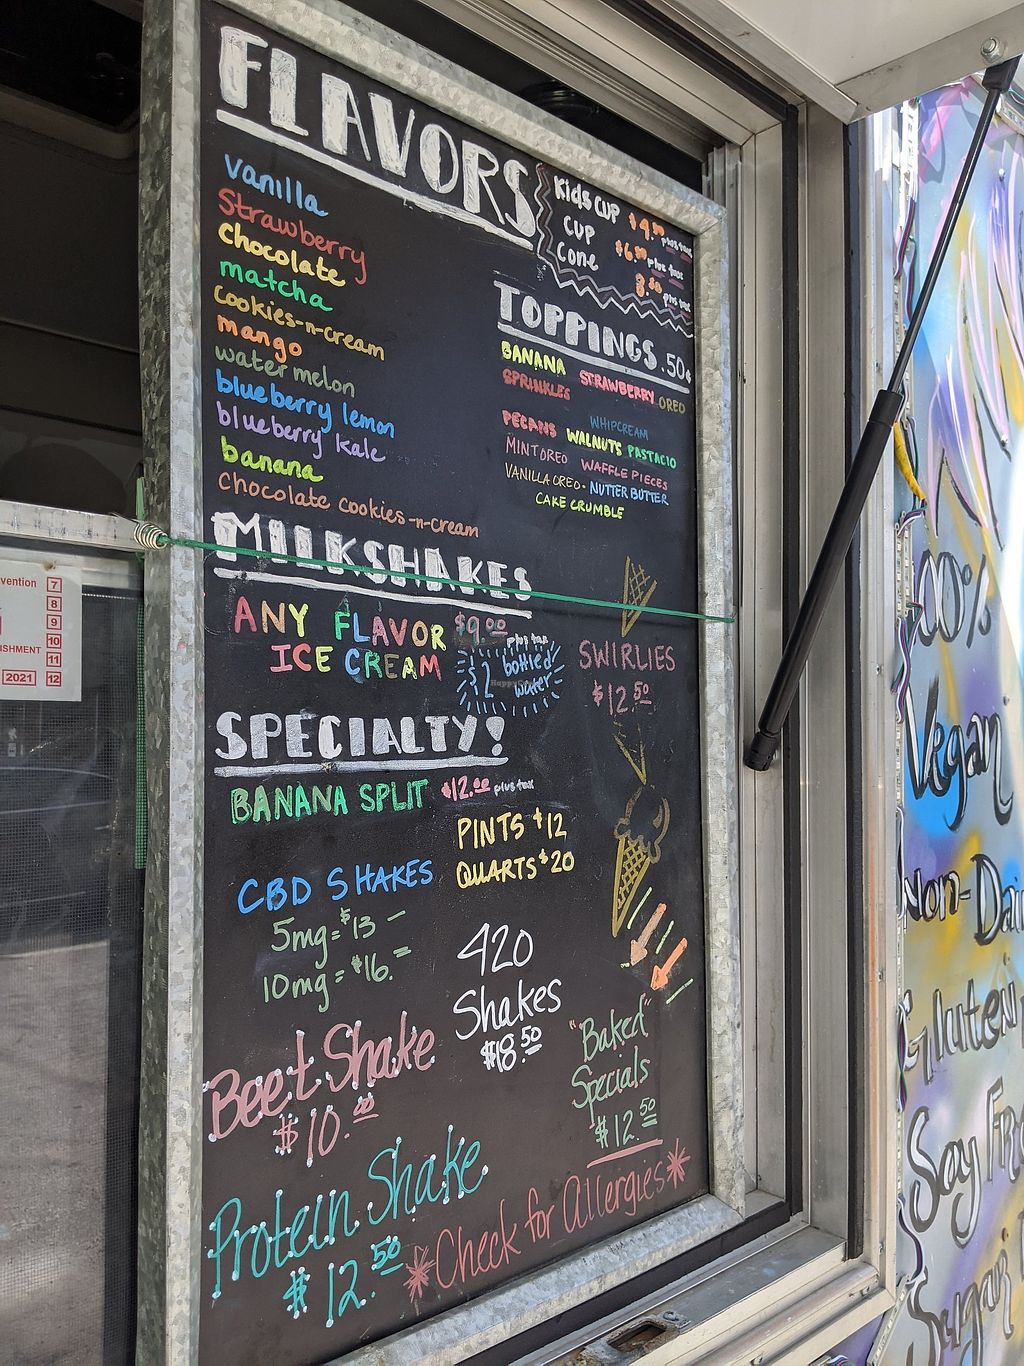 FLAVORS
vanilla
Strawberry
Chocolate
matcha
cookies-n-cream
mango
water melon
blueberry lemon
blueberry kale
banana
Chocolate cookies-n-cream
Kids cup $4.00 plus tax
cup $6.00 plus tax
cone 8.50 plus tax
TOPPINGS .50¢
BANANA STRAWBERRY OREO
SPRINKLES
PECANS WHIPCREAM
WALNUTS PASTACIO
MINT OREO WAFFLE PIECES
VANILLA OREO - NUTTER BUTTER
CAKE CRUMBLE
MILKSHAKES
ANY FLAVOR $9.00 plus tax
ICE CREAM
$2 bottled
water
SWIRLIES
$12.50
SPECIALTY!
BANANA SPLIT $12.00 plus tax
PINTS $12
QUARTS $20
CBD SHAKES
5mg = $13 –
10mg = $16. =
420
Shakes
$18.50
"Baked"
Specials
$12.50
Beet Shake
$10.00
Protein Shake
$12.50
*Check for Allergies*
vention
ISHMENT
2021
7
8
9
10
11
12
00%
Vegan
Non-Dai
Gluten-
Soy Fre
Sugar
HappyCow